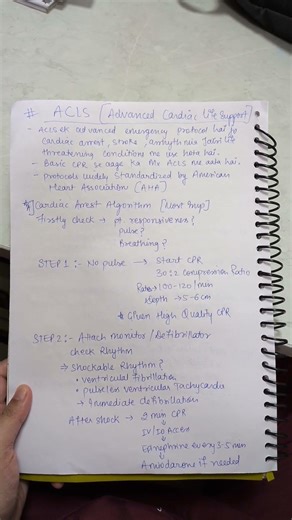 # ACLS [Advanced Cardiac life support]
- ACLS ek advanced emergency protocol hai jo
cardiac arrest, stroke, arrhythmia jaisi life
threatening conditions me use hota hai.
- Basic CPR se aage ka step ACLS me aata hai.
- protocols widely standardized by American
Heart Association (AHA)
Cardiac Arrest Algorithm [Most Imp]
Firstly check → pt. responsiveness?
pulse?
Breathing?
STEP 1:- No pulse → Start CPR
30:2 compression Ratio
Rate → 100-120/min
depth → 5-6cm
* Given High Quality CPR
STEP 2:- Attach monitor/Defibrillator
check Rhythm
⇒ Shockable Rhythm?
• Ventricular fibrillation
• pulseless ventricular Tachycardia
→ Immediate defibrillation
After shock → 2 min CPR
↓
IV/IO Access
↓
Epinephrine every 3-5 min
↓
Amiodarone if needed